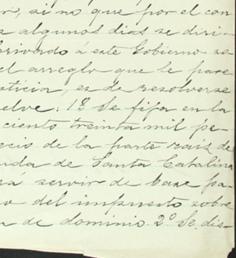 r, si no que por el con
a algunos días se diri-
privado á este Gobierno se
el arreglo que le pare
sticia, es de resolverse
elve. 1º Se fija en la
ciento treinta mil pe
ecio de la parte raíz de
nda de Santa Catalina
ra servir de base pa-
o del impuesto sobre
n de dominio. 2º Se dis-